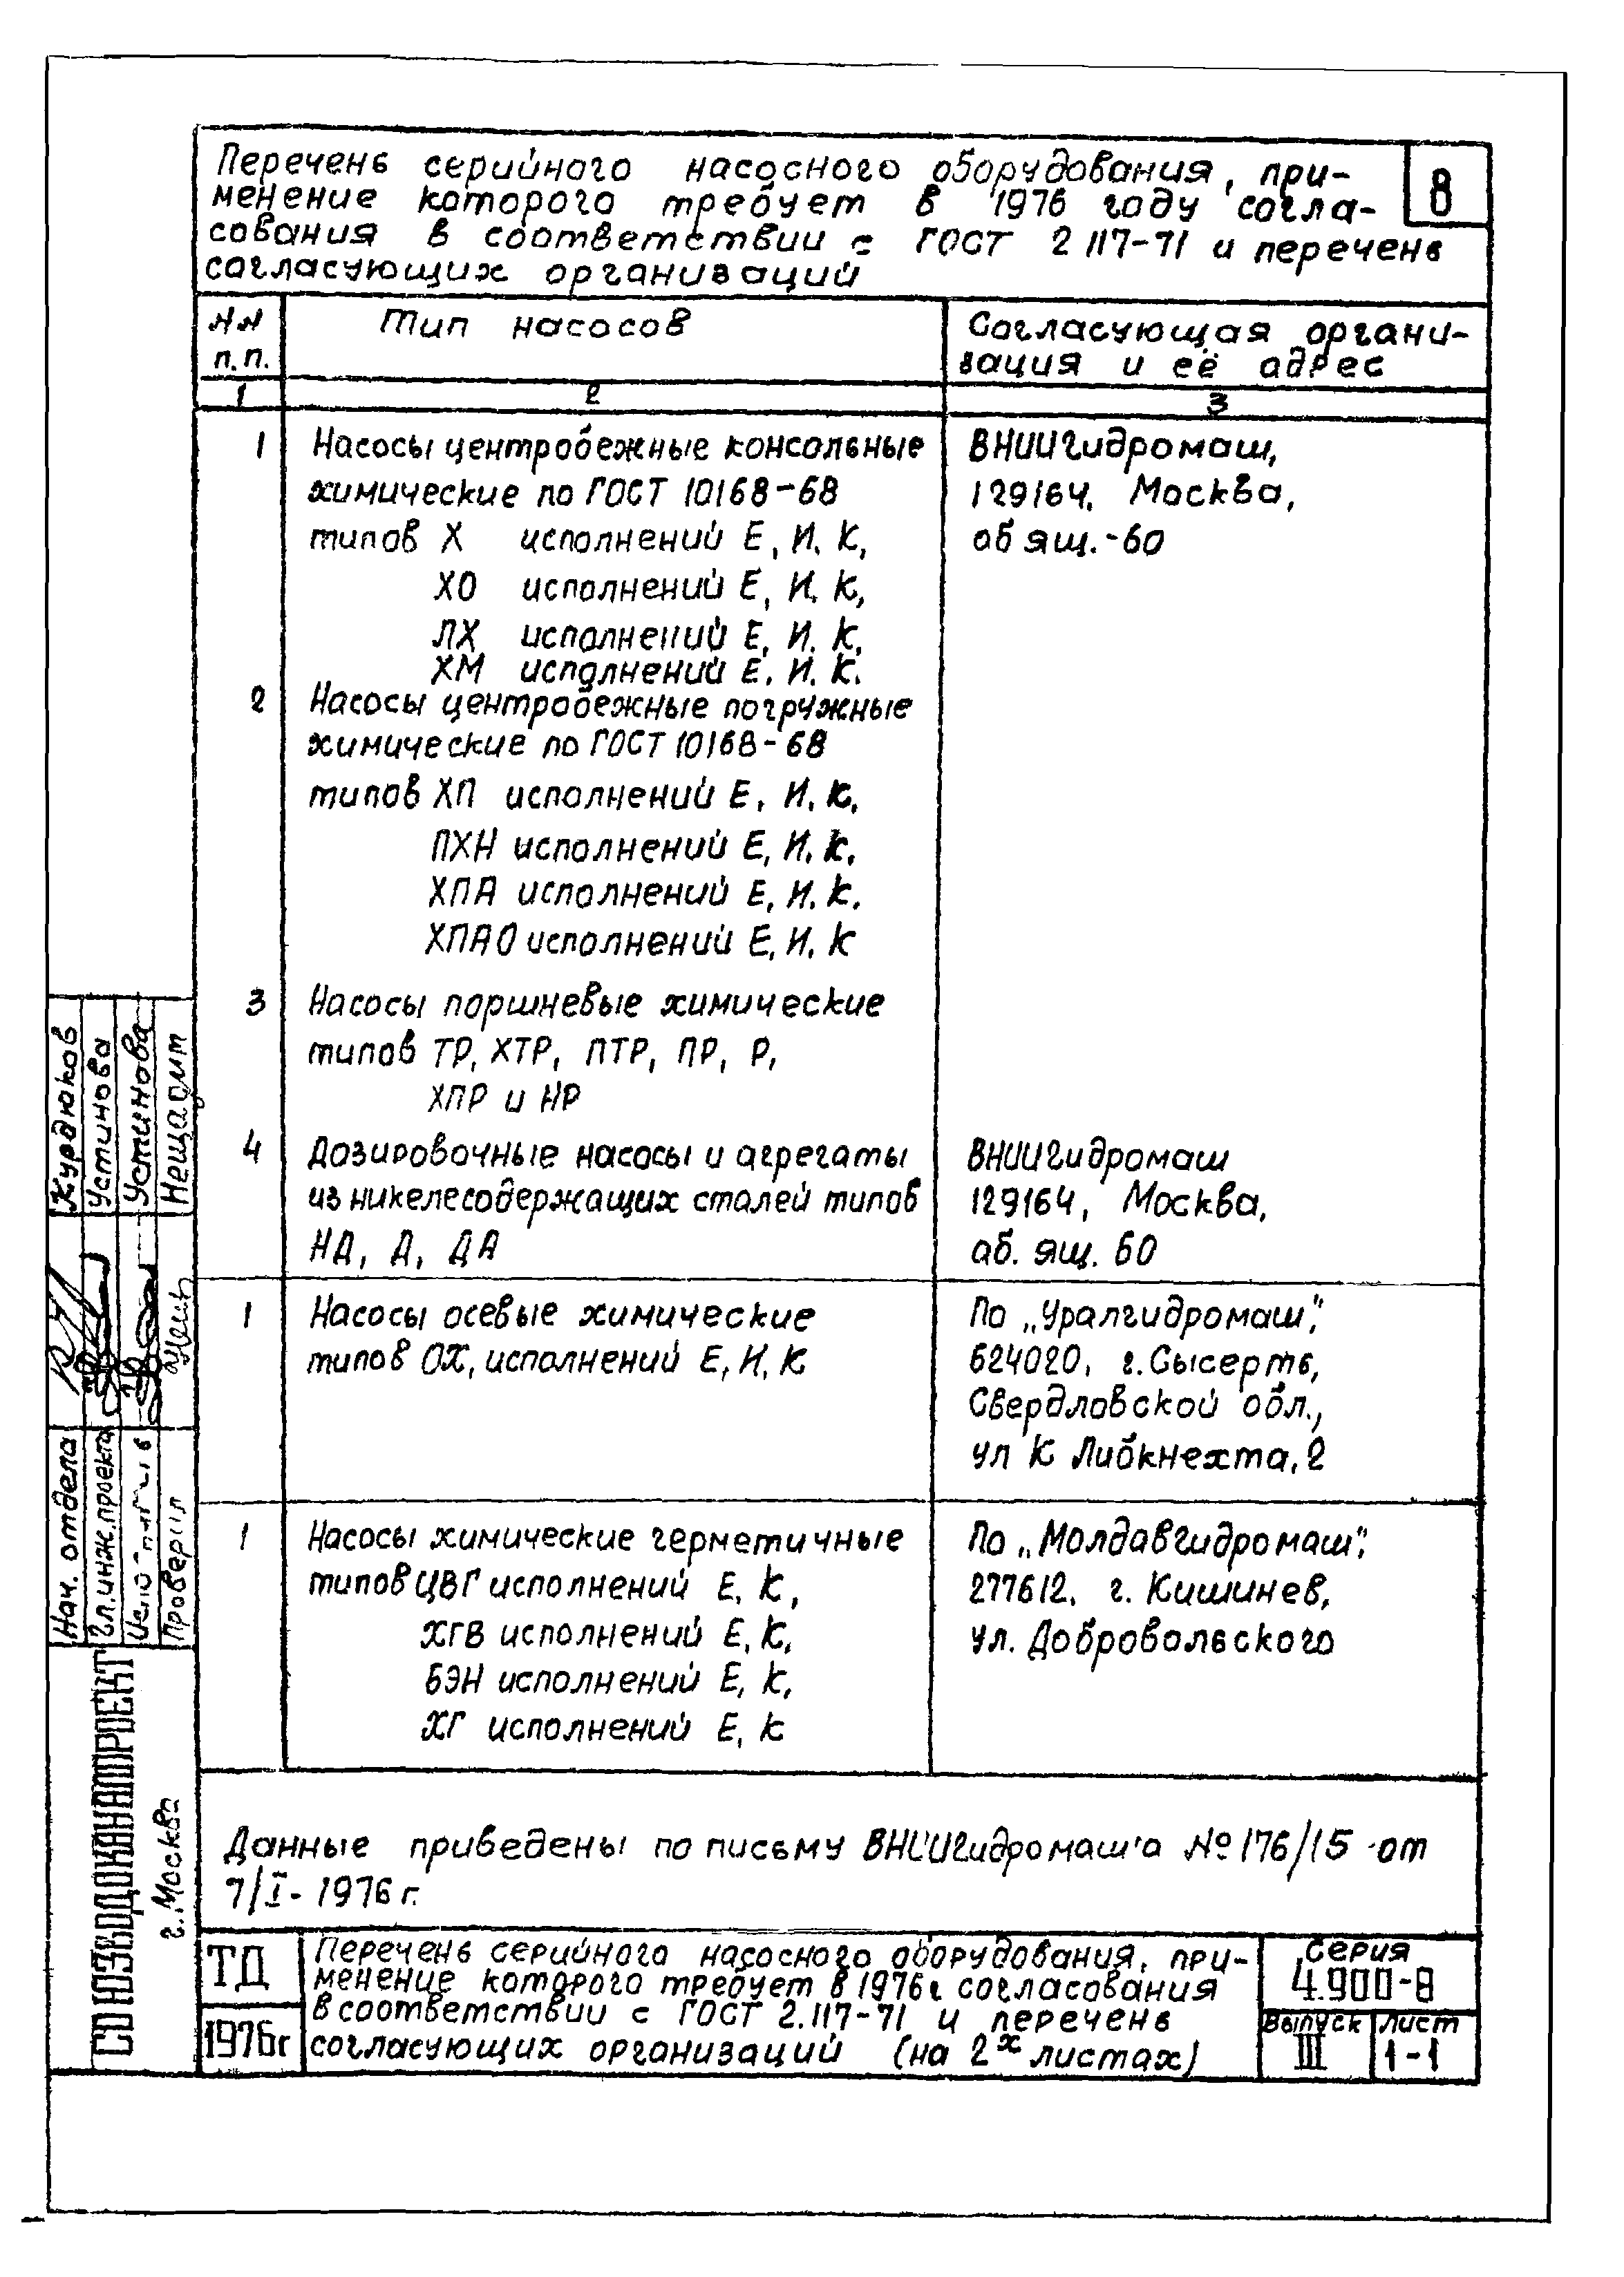 Перечень серийного насосного оборудования, при-
менение которого требует в 1976 году согла-
сования в соответствии с ГОСТ 2 117-71 и перечень
согласующих организаций
8
NN
п.п.
Тип насосов
Согласующая органи-
зация и её адрес
1
2
3
1
Насосы центробежные консольные
химические по ГОСТ 10168-68
типов Х исполнений Е, И, К,
ХО исполнений Е, И, К,
ЛХ исполнений Е, И, К,
ХМ исполнений Е, И, К.
ВНИИГидромаш,
129164, Москва,
аб ящ.-60
2
Насосы центробежные погружные
химические по ГОСТ 10168-68
типов ХП исполнений Е, И, К,
ПХН исполнений Е, И, К,
ХПА исполнений Е, И, К,
ХПАО исполнений Е, И, К
3
Насосы поршневые химические
типов ТР, ХТР, ПТР, ПР, Р,
ХПР и НР
4
Дозировочные насосы и агрегаты
из никелесодержащих сталей типов
НД, Д, ДА
ВНИИГидромаш
129164, Москва,
аб. ящ. 60
1
Насосы осевые химические
типов ОХ, исполнений Е, И, К
По „Уралгидромаш",
624020, г. Сысерть,
Свердловской обл.,
ул К Либкнехта, 2
1
Насосы химические герметичные
типов ЦВГ исполнений Е, К,
ХГВ исполнений Е, К,
БЭН исполнений Е, К,
ХГ исполнений Е, К
По „Молдавгидромаш",
277612, г. Кишинев,
ул. Добровольского
Данные приведены по письму ВНИИГидромаш'а № 176/15 от
7/I-1976 г.
ТД
1976г
Перечень серийного насосного оборудования, при-
менение которого требует в 1976г согласования
в соответствии с ГОСТ 2.117-71 и перечень
согласующих организаций (на 2х листах)
Серия
4.900-8
Выпуск
III
Лист
1-1
Нач. отдела
Курдюков
Гл. инж. проекта
Устинова
Устинова
Проверил
Нещадит
СОЮЗВОДОКАНАЛПРОЕКТ
г. Москва